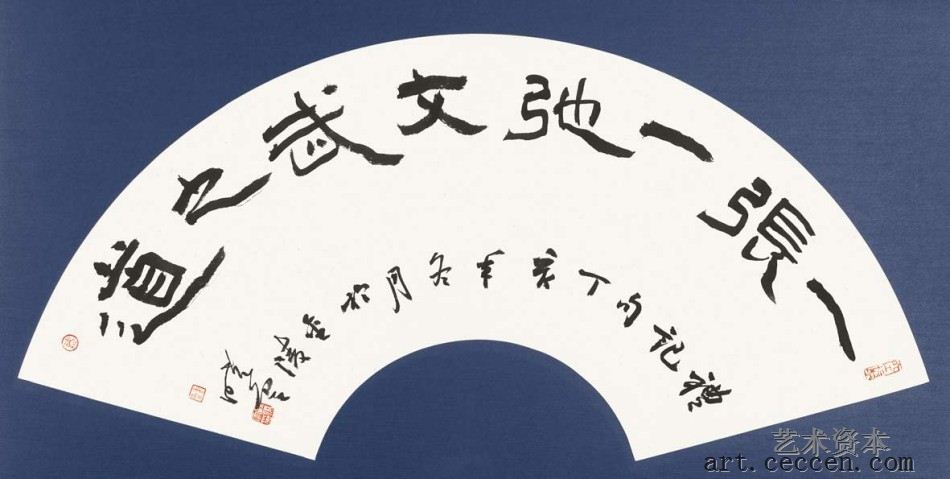 一張一弛文武之道
禮記句丁亥年冬月於金陵
艺术资本
art.ceccen.com